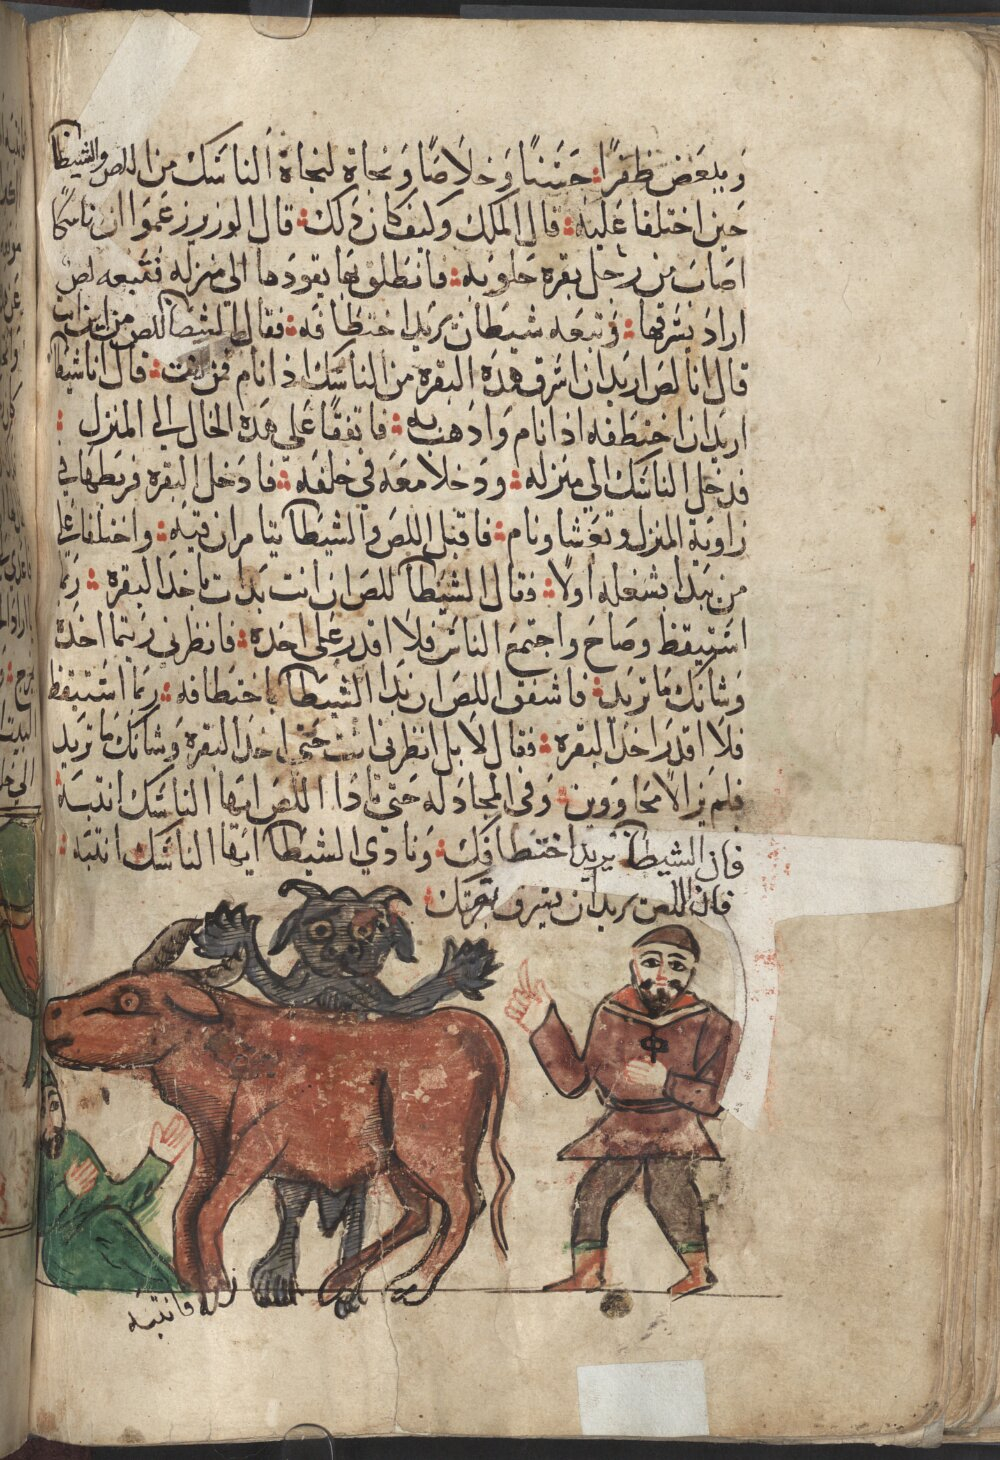 وببعض ظفرًا حسنًا وخلاصًا ونجاة لنجاة الناسك من اللص والشيطا
حين اختلفا عليه قال الملك وكيف كان ذلك قال الوزير زعموا ان ناسكًا
اصاب من رجل بقره حلوبه فانطلق بها يقودها الى منزله فتبعه لص
اراد سرقها وتبعه شيطان يريد اختطافه فقال الشيطا للص من انت
قال انا لص اريد ان اسرق هذه البقره من الناسك اذا نام فمن انت قال انا شيطا
اريد ان اختطفه اذا نام واذهب به فاتفقا على هذه الحال الي المنزل
فدخل الناسك الي منزله ودخلا معه في خلفه فادخل البقره فربطها في
زاوية المنزل وتعشا ونام فاقبل اللص والشيطا يتامران فيه واختلفا على
من يبدا بشغله اولًا فقال الشيطا للص ان انت بدات باخذ البقره ربما
استيقظ وصاح واجتمع الناس فلا اقدر على اخذه فانظرني ريتما اخذه
وشانك ما تريد فاشفق اللص ان بدا الشيطا باختطافه ربما استيقظ
فلا اقدر اخذ البقره فقال لا بل انظرني انت حتى اخذ البقره وشانك ما تريد
فلم يزالا يتحاورون وفي المجادله حتي نادا اللص ايها الناسك انتبه
فان الشيطا يريد اختطافك ونادي الشيطا ايها الناسك انتبه
فان اللص يريد ان يسرق بقرتك
فانتبه